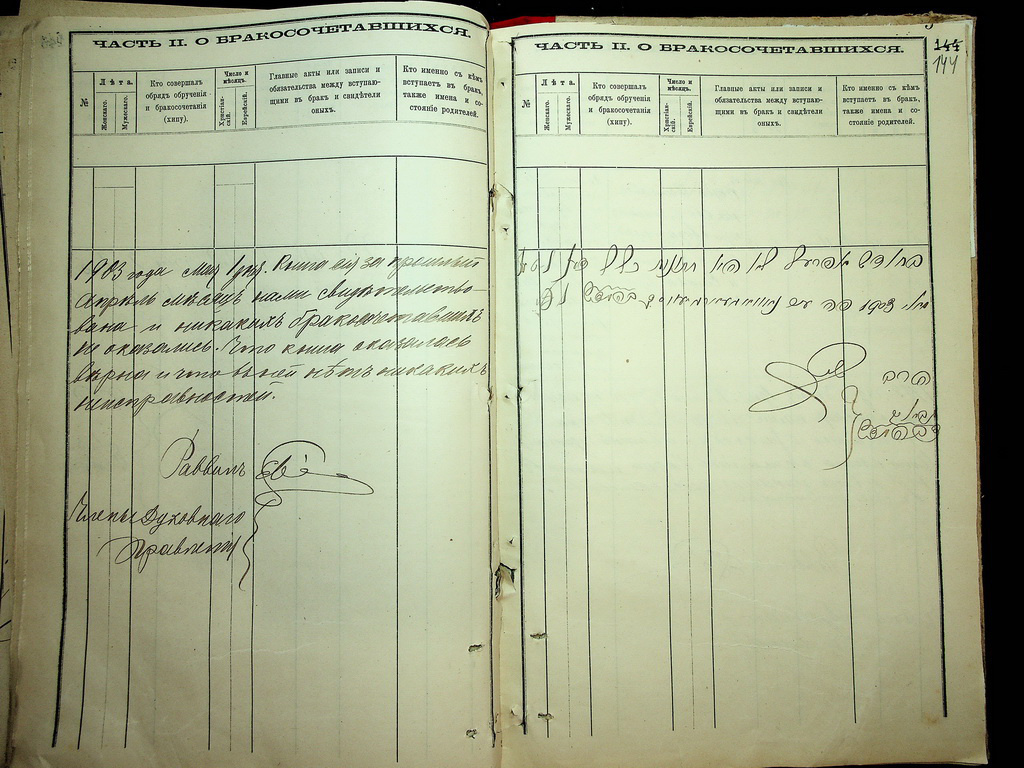 ЧАСТЬ II. О БРАКОСОЧЕТАВШИХСЯ.
№
Лѣта.
Женскаго.
Мужескаго.
Кто совершалъ
обрядъ обрученія
и бракосочетанія
(хипу).
Число и
мѣсяцъ.
Христіан-
скій.
Еврейскій.
Главные акты или записи и
обязательства между вступаю-
щими въ бракъ и свидѣтели
оныхъ.
Кто именно съ кѣмъ
вступаетъ въ бракъ,
также имена и со-
стояніе родителей.
1903 года Мая 1 дня. Книга сія за прошлый
Апрѣль мѣсяцъ нами свидѣтельство-
вана и никакихъ бракосочетавшихся
не оказались. Что книга оказалась
вѣрна и что въ ней нѣтъ никакихъ
неисправностей.
Раввинъ
Члены Духовнаго
Правленія
ЧАСТЬ II. О БРАКОСОЧЕТАВШИХСЯ.
144
144
№
Лѣта.
Женскаго.
Мужескаго.
Кто совершалъ
обрядъ обрученія
и бракосочетанія
(хипу).
Число и
мѣсяцъ.
Христіан-
скій.
Еврейскій.
Главные акты или записи и
обязательства между вступаю-
щими въ бракъ и свидѣтели
оныхъ.
Кто именно съ кѣмъ
вступаетъ въ бракъ,
также имена и со-
стояніе родителей.
בחודש אפריל לא היו חתונות כלל
1903 פה
הרב